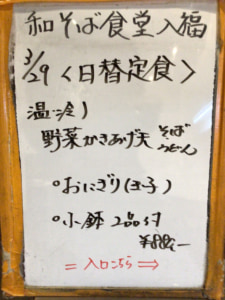 和そば食堂入福
3/29 <日替定食>
温冷)
野菜かきあげ天 そば うどん
○おにぎり(玉子)
○小鉢 2品付
¥880-
= 入口こちら ⇒